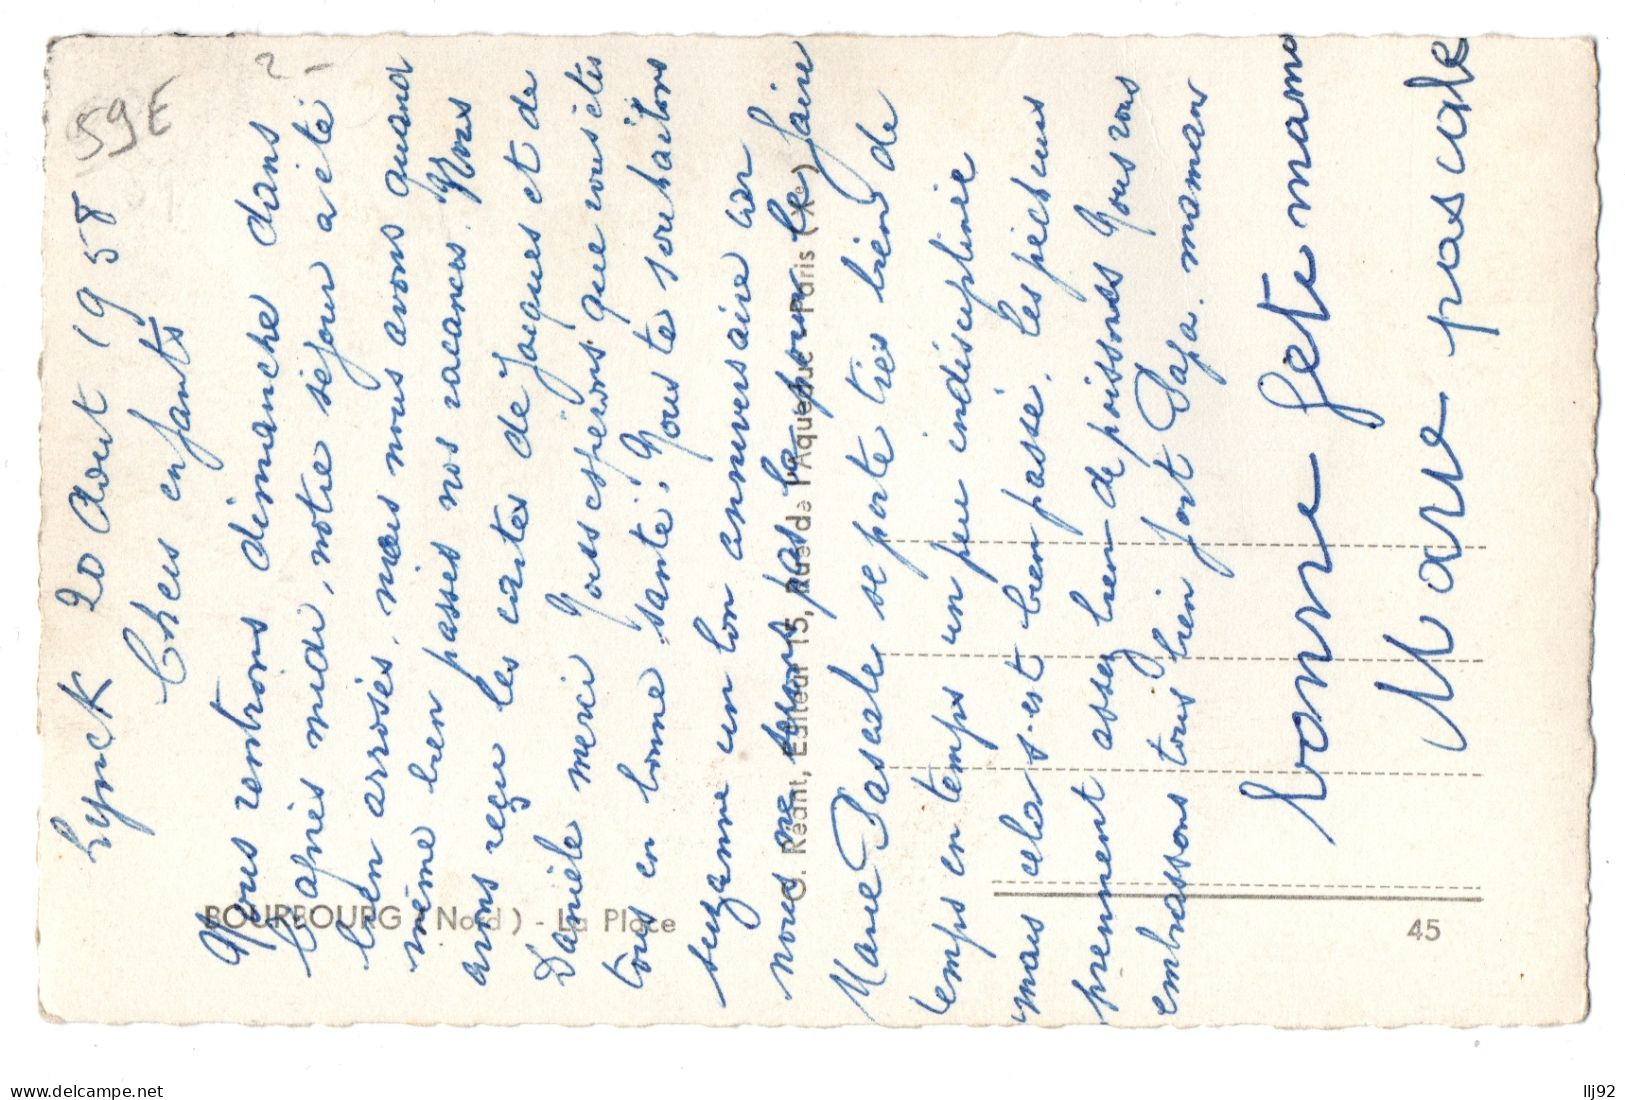 Lynck 20 Aout 1958
Chers enfants
Nous rentrons dimanche dans
l'après midi, notre séjour a été
bien arrosés, mais nous avons quand
même bien passés nos vacances. Nous
avons reçu les cartes de Jacques et de
Danièle merci Nous espérons que vous êtes
tous en bonne santé. Nous te souhaitons
suzanne un bon anniversaire car
nous ne serons pas là pour le faire
Marie Pascale se porte très bien de
temps en temps un peu indisciplinée
mais cela s'est bien passé. les pécheurs
prennent assez bien de poissons Nous vous
embrassons tous bien fort Papa. maman
bonne fete maman
Marie pascale
59E
2 -
BOURBOURG (Nord) - La Place
45
C. Réant, Editeur 15, Rue de l'Aqueduc - Paris (Xe)
https://www.delcampe.net
llj92